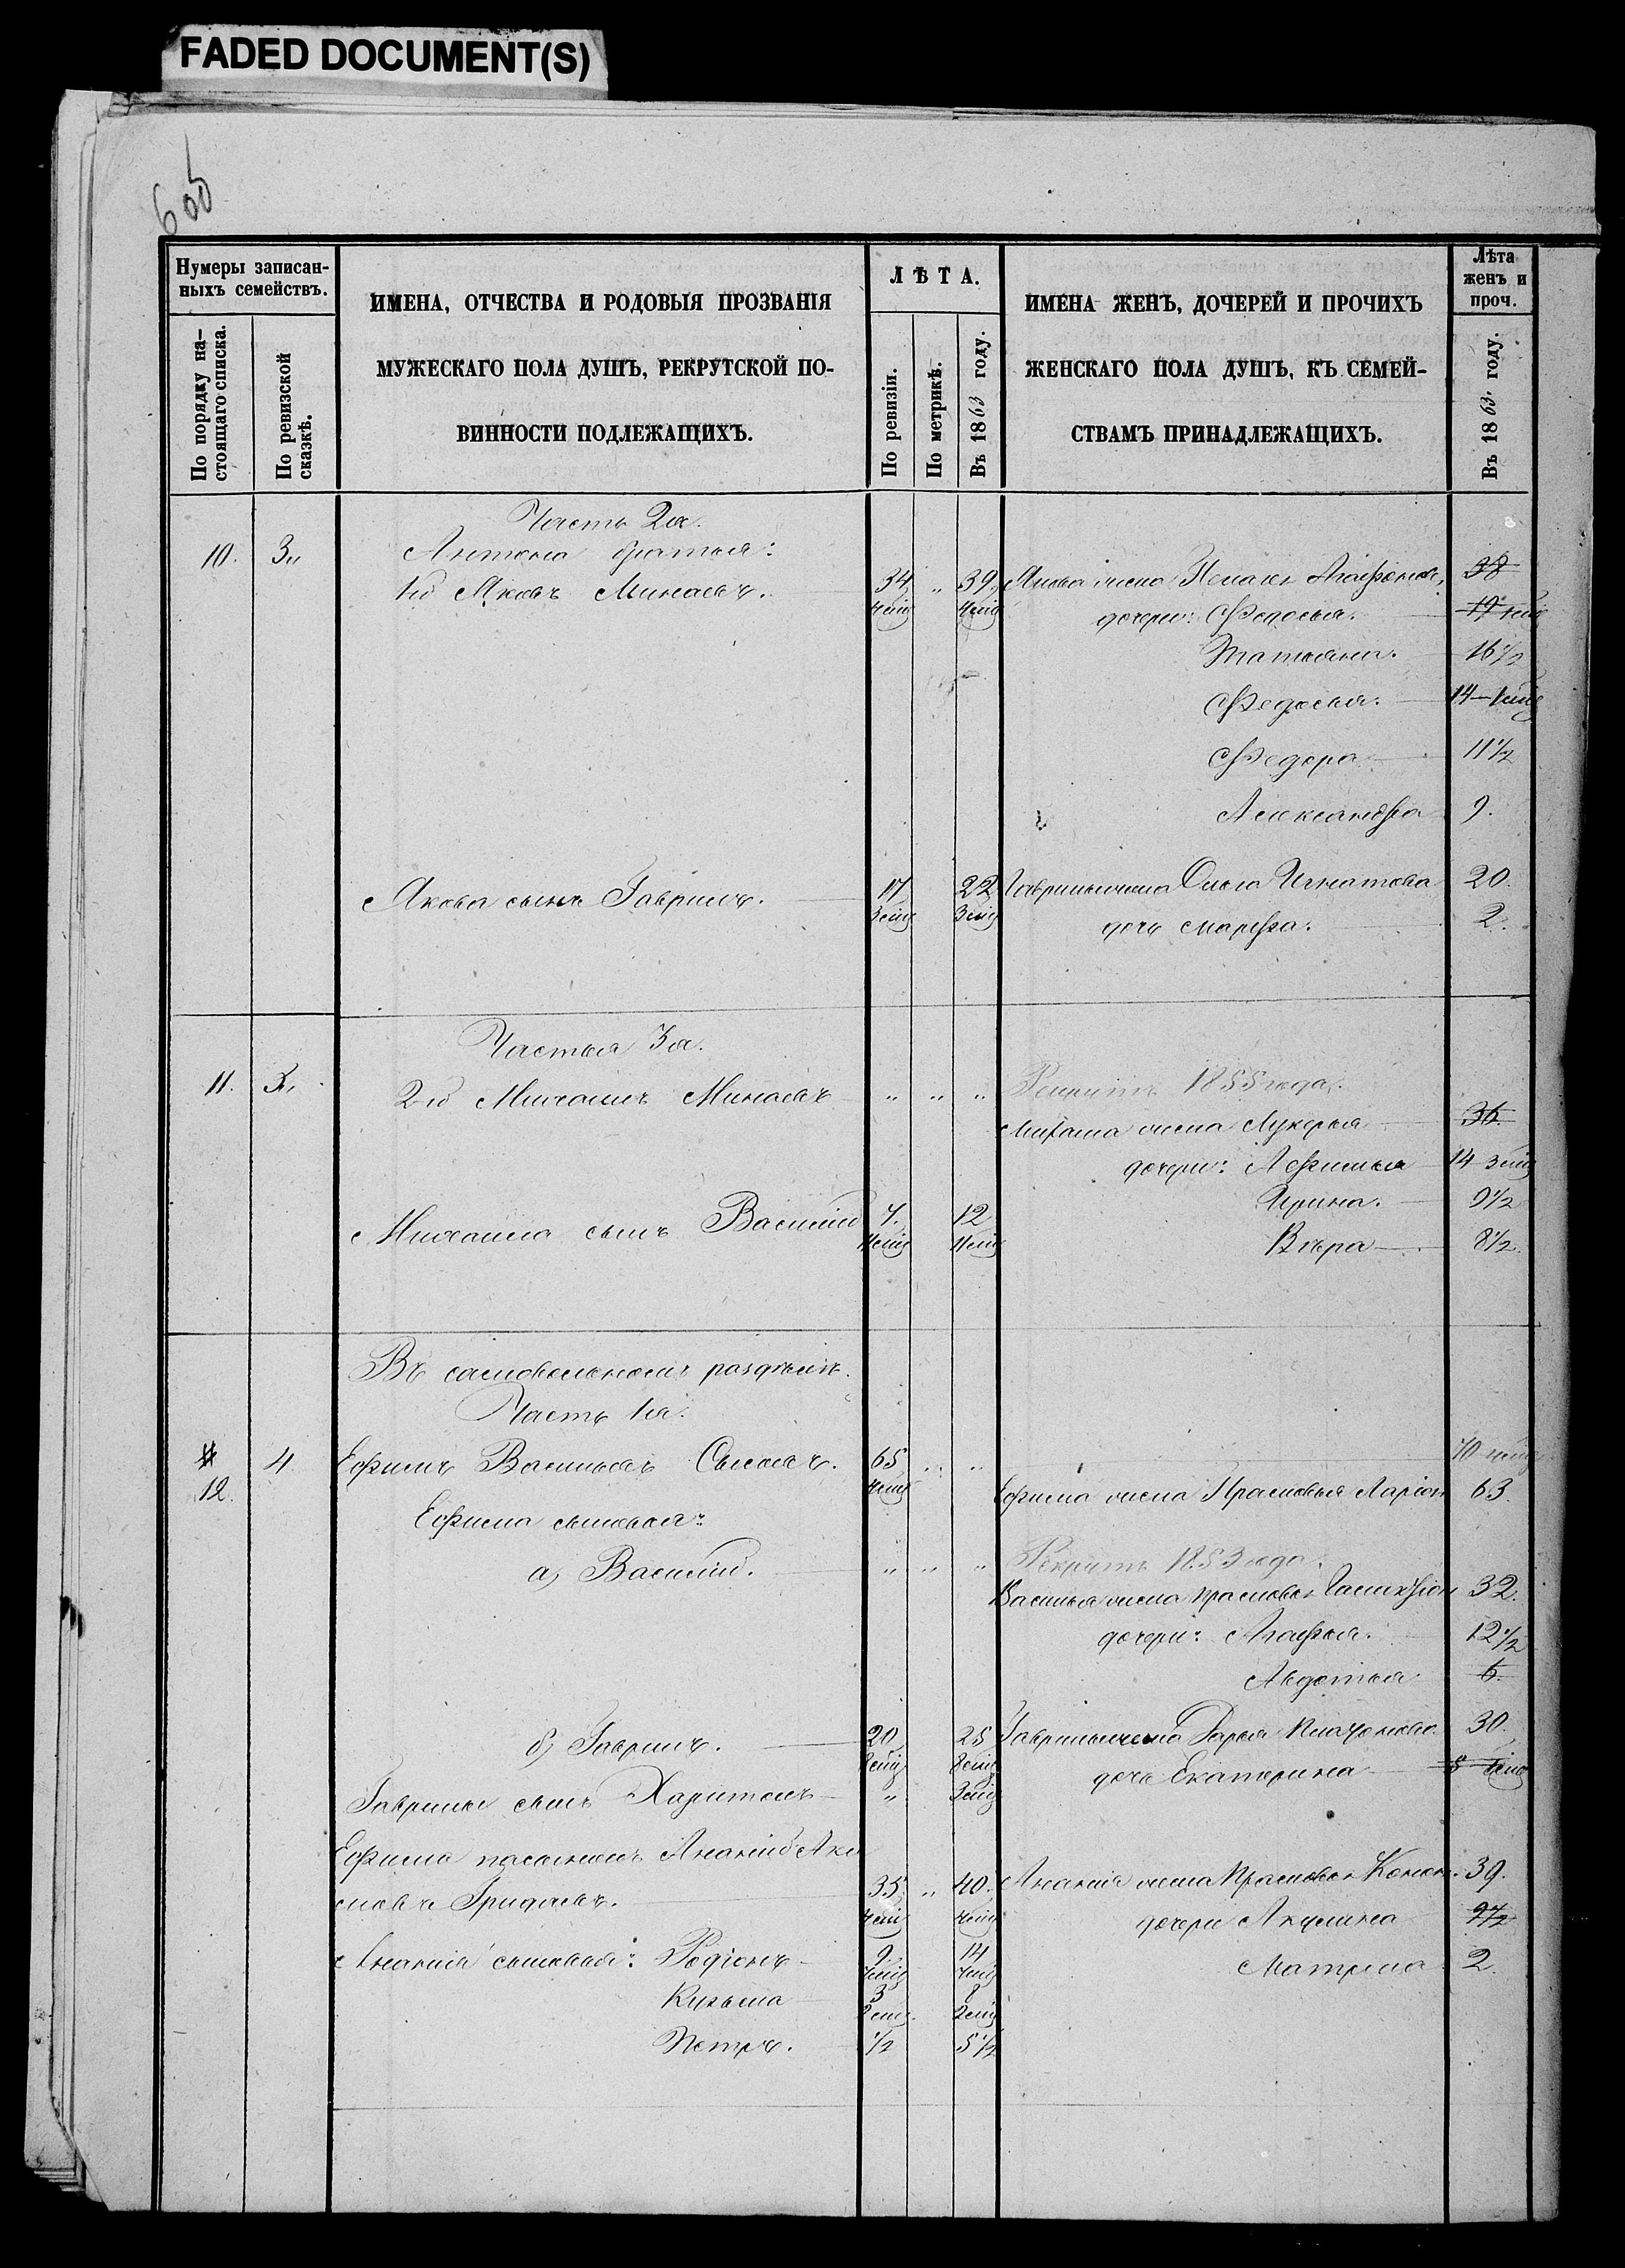 FADED DOCUMENT(S)
6об
Нумеры записан-
ныхъ семействъ.
По порядку на-
стоящаго списка.
По ревизской
сказкѣ.
ИМЕНА, ОТЧЕСТВА И РОДОВЫЯ ПРОЗВАНІЯ
МУЖЕСКАГО ПОЛА ДУШЪ, РЕКРУТСКОЙ ПО-
ВИННОСТИ ПОДЛЕЖАЩИХЪ.
ЛѢТА.
По ревизіи.
По метрикѣ.
Въ 1863 году.
ИМЕНА ЖЕНЪ, ДОЧЕРЕЙ И ПРОЧИХЪ
ЖЕНСКАГО ПОЛА ДУШЪ, КЪ СЕМЕЙ-
СТВАМЪ ПРИНАДЛЕЖАЩИХЪ.
Лѣта
женъ и
проч.
Въ 1863 году.
Часть 2я.
10. 3" Антона братья:
1й Яковъ Минаевъ. 34 " 39 Якова жена 38
дочери: Федосья. 19
Татьяна. 16 1/2
Федосья. 14
Федора 11 1/2
Александра 9.
Якова сынъ Гаврилъ. 17 22 Гаврилы жена Игнатова 20.
дочь Марфа. 2.
Частья 3я.
11. 3" 2й Михаилъ Минаевъ " " " Рекрутъ 1855 года.
Михаила жена Лукерья 36.
дочери: Афимья 14
Ирина. 9 1/2
Михаила сынъ Василій 7. 12 Вѣра 8 1/2
Въ самовольномъ раздѣлѣ.
Часть 1я.
11 4 Ефимъ Васильевъ 65 " " 70
12. Ефима жена Прасковья Ларіон 63.
Ефима сыновья:
а) Василій. " " " Рекрутъ 1853 года.
Василья жена Прасковья 32.
дочери: Агафья. 12 1/2
Авдотья 6.
б) Гаврилъ. 20 25 Гаврилы жена Дарья 30.
дочь Екатерина 8
Гаврилы сынъ Харитонъ "
Ефима пасынокъ Ананій
Григорьевъ. 35. " 40. Ананія жена Прасковья Конон. 39.
дочери Акулина 9 1/2
Ананія сыновья: Родіонъ 9. 14 Матрена 2.
Кузьма 3 8
Петръ. 1/2 5 1/2